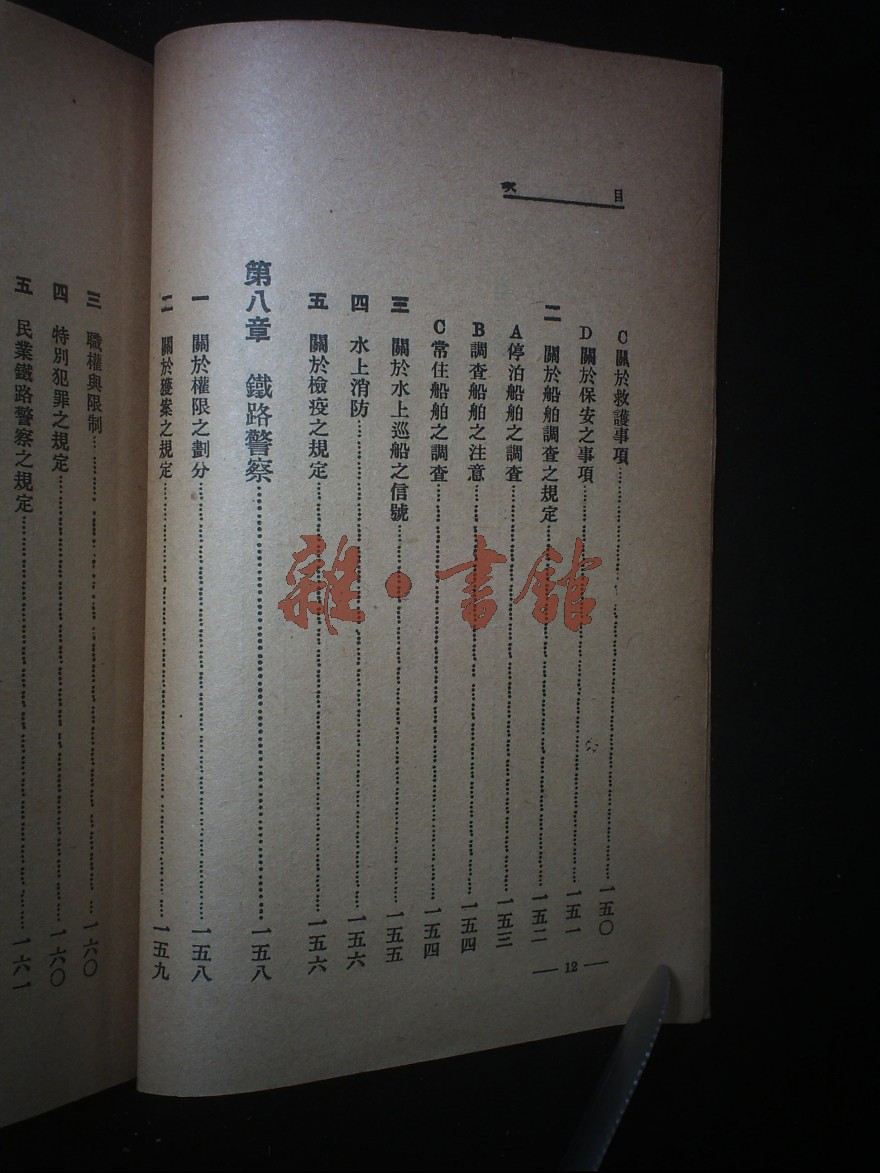 目次
C關於救護事項……一五〇
D關於保安之事項……一五一
二 關於船舶調查之規定……一五二
A停泊船舶之調查……一五三
B調查船舶之注意……一五四
C常住船舶之調查……一五四
三 關於水上巡船之信號……一五五
四 水上消防……一五六
五 關於檢疫之規定……一五六
第八章 鐵路警察……一五八
一 關於權限之劃分……一五八
二 關於獲案之規定……一五九
— 12 —
三 職權與限制……一六〇
四 特別犯罪之規定……一六〇
五 民業鐵路警察之規定……一六一
雜·書館